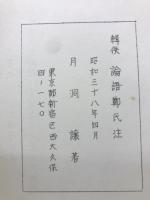 輯佚 論語鄭氏注
昭和三十八年四月
月洞讓著
東京都新宿区西大久保
四ノ一七〇